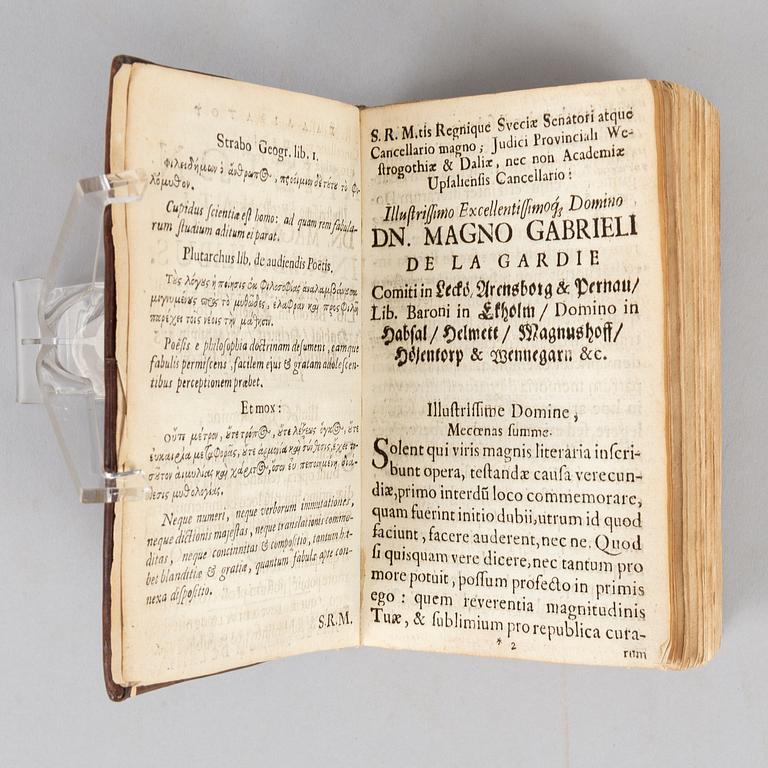 Strabo Geogr. lib. 1.
φιλειδήμων ὁ ἄνθρωπ@, προοίμιον δὲ τύτυ τὸ φι-
λόμυθον.
Cupidus scientiæ est homo: ad quam rem fabula-
rum studium aditum ei parat.
Plutarchus lib. de audiendis Poëtis.
μεμιγμένυς
παρέχει τοῖς νέοις τὴν μάθησιν.
Poësis e philosophia doctrinam desument, eamque
fabulis permiscens, facilem ejus & gratam adolescen-
tibus perceptionem præbet.
Et mox:
Οὔτε μέτρον, ὔτε τρόπ@, ὔτε λέξεως ὄγκ@, ὔτε
εὐκαιρία μεταφορᾶς, ὔτε ἁρμονία καὶ σύνθεσις, ἔχει το-
σῦτον αἱμυλίας καὶ χάριτ@, ὅσον εὖ πεπλεγμένη διά-
θεσις μυθολογίας.
Neque numeri, neque verborum immutationes,
neque dictionis majestas, neque translationis commo-
ditas, neque concinnitas & compositio, tantum ha-
bet blanditiæ & gratiæ, quantum fabulæ apte con-
nexa dispositio.
S.R.M.
S. R. M.tis Regnique Sveciæ Senatori atque
Cancellario magno; Judici Provinciali We-
strogothiæ & Daliæ, nec non Academiæ
Upsaliensis Cancellario:
Illustrissimo Excellentissimoq; Domino
DN. MAGNO GABRIELI
DE LA GARDIE
Comiti in Leckö, Arensborg & Pernau/
Lib. Baroni in Ekholm / Domino in
Habsal / Helmett / Magnushoff/
Höjentorp & Wennegarn &c.
Illustrissime Domine,
Mecœnas summe.
Solent qui viris magnis literaria inscri-
bunt opera, testandæ causa verecun-
diæ, primo interdū loco commemorare,
quam fuerint initio dubii, utrum id quod
faciunt, facere auderent, nec ne. Quod
si quisquam vere dicere, nec tantum pro
more potuit, possum profecto in primis
ego: quem reverentia magnitudinis
Tuæ, & sublimium pro republica cura-
* 2
rum